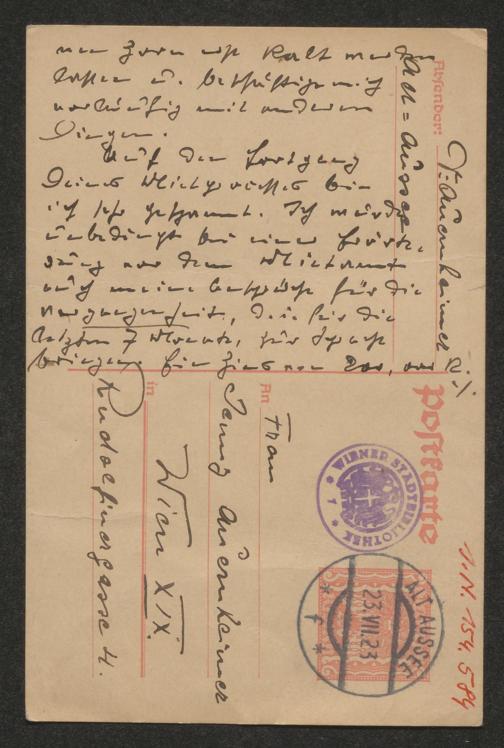 nun Zorn erst kalt werden
lassen u. beschäftige mich
vorläufig mit anderen
Dingen.
Auf den Fortgang
Deines Mietprozesses bin
ich sehr gespannt. Ich würde
unbedingt bei einer
vor dem Mietamt
auch meine Ansprüche für die
Vergangenheit, d.i. für die
letzten 7 Monate, zur Sprache
bringen.
Absender:
R. Auernheimer
Alt-Aussee
Postkarte
An
Frau
Jenny Auernheimer
in
Wien XIX.
Rudolfinergasse 4.
WIENER STADTBIBLIOTHEK
ALT AUSSEE
23.VII.23
* f *
I.N. 154.584